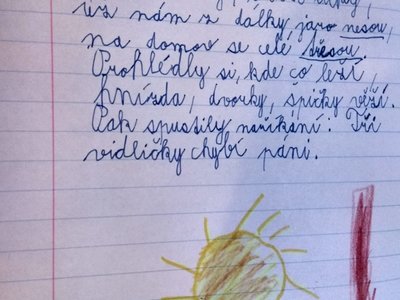 už nám z dálky jaro nesou,
na domov se celé třesou.
Prohlédly si, kde co leží,
hnízda, dvorky, špičky věží.
Pak spustily naříkání: Tři
vidličky chybí, páni.